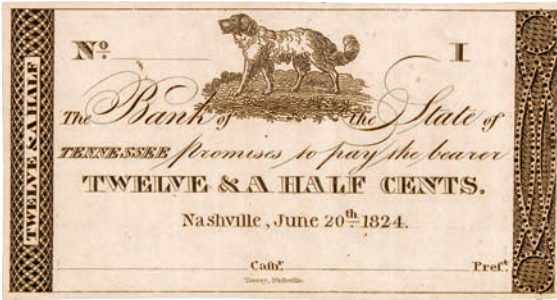 TWELVE & A HALF
Nº I
The Bank of the State of
TENNESSEE promises to pay the bearer
TWELVE & A HALF CENTS.
Nashville, June 20th 1824.
Cashr. Prest.
Nashville.